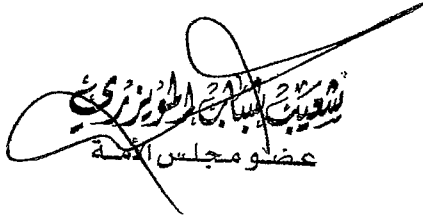 شعيب شباب المويزري
عضو مجلس الأمة